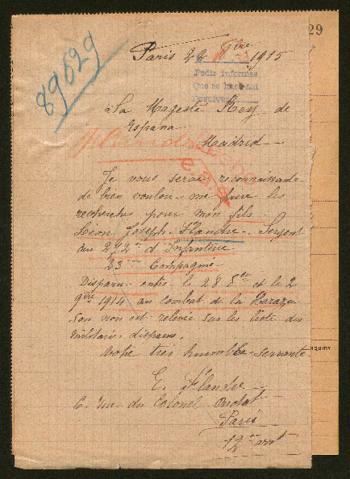 29
89629
Paris 22 9bre 1915
Pedir informes
Sa Majesté Roy de
Espana
Madrid
Je vous serai reconnaissante
de bien vouloir me faire les
recherches pour mon fils
Léon Joseph Flandre Sergent
au 242me d'Infanterie
23me Compagnie
Disparu entre le 28 8bre et le 2
9bre 1914 au combat de la
son nom est relevée sur les liste des
militaires disparus.
Votre très humble servante
E. Flandre
6 rue du Colonel Oudot
Paris
12 arrt